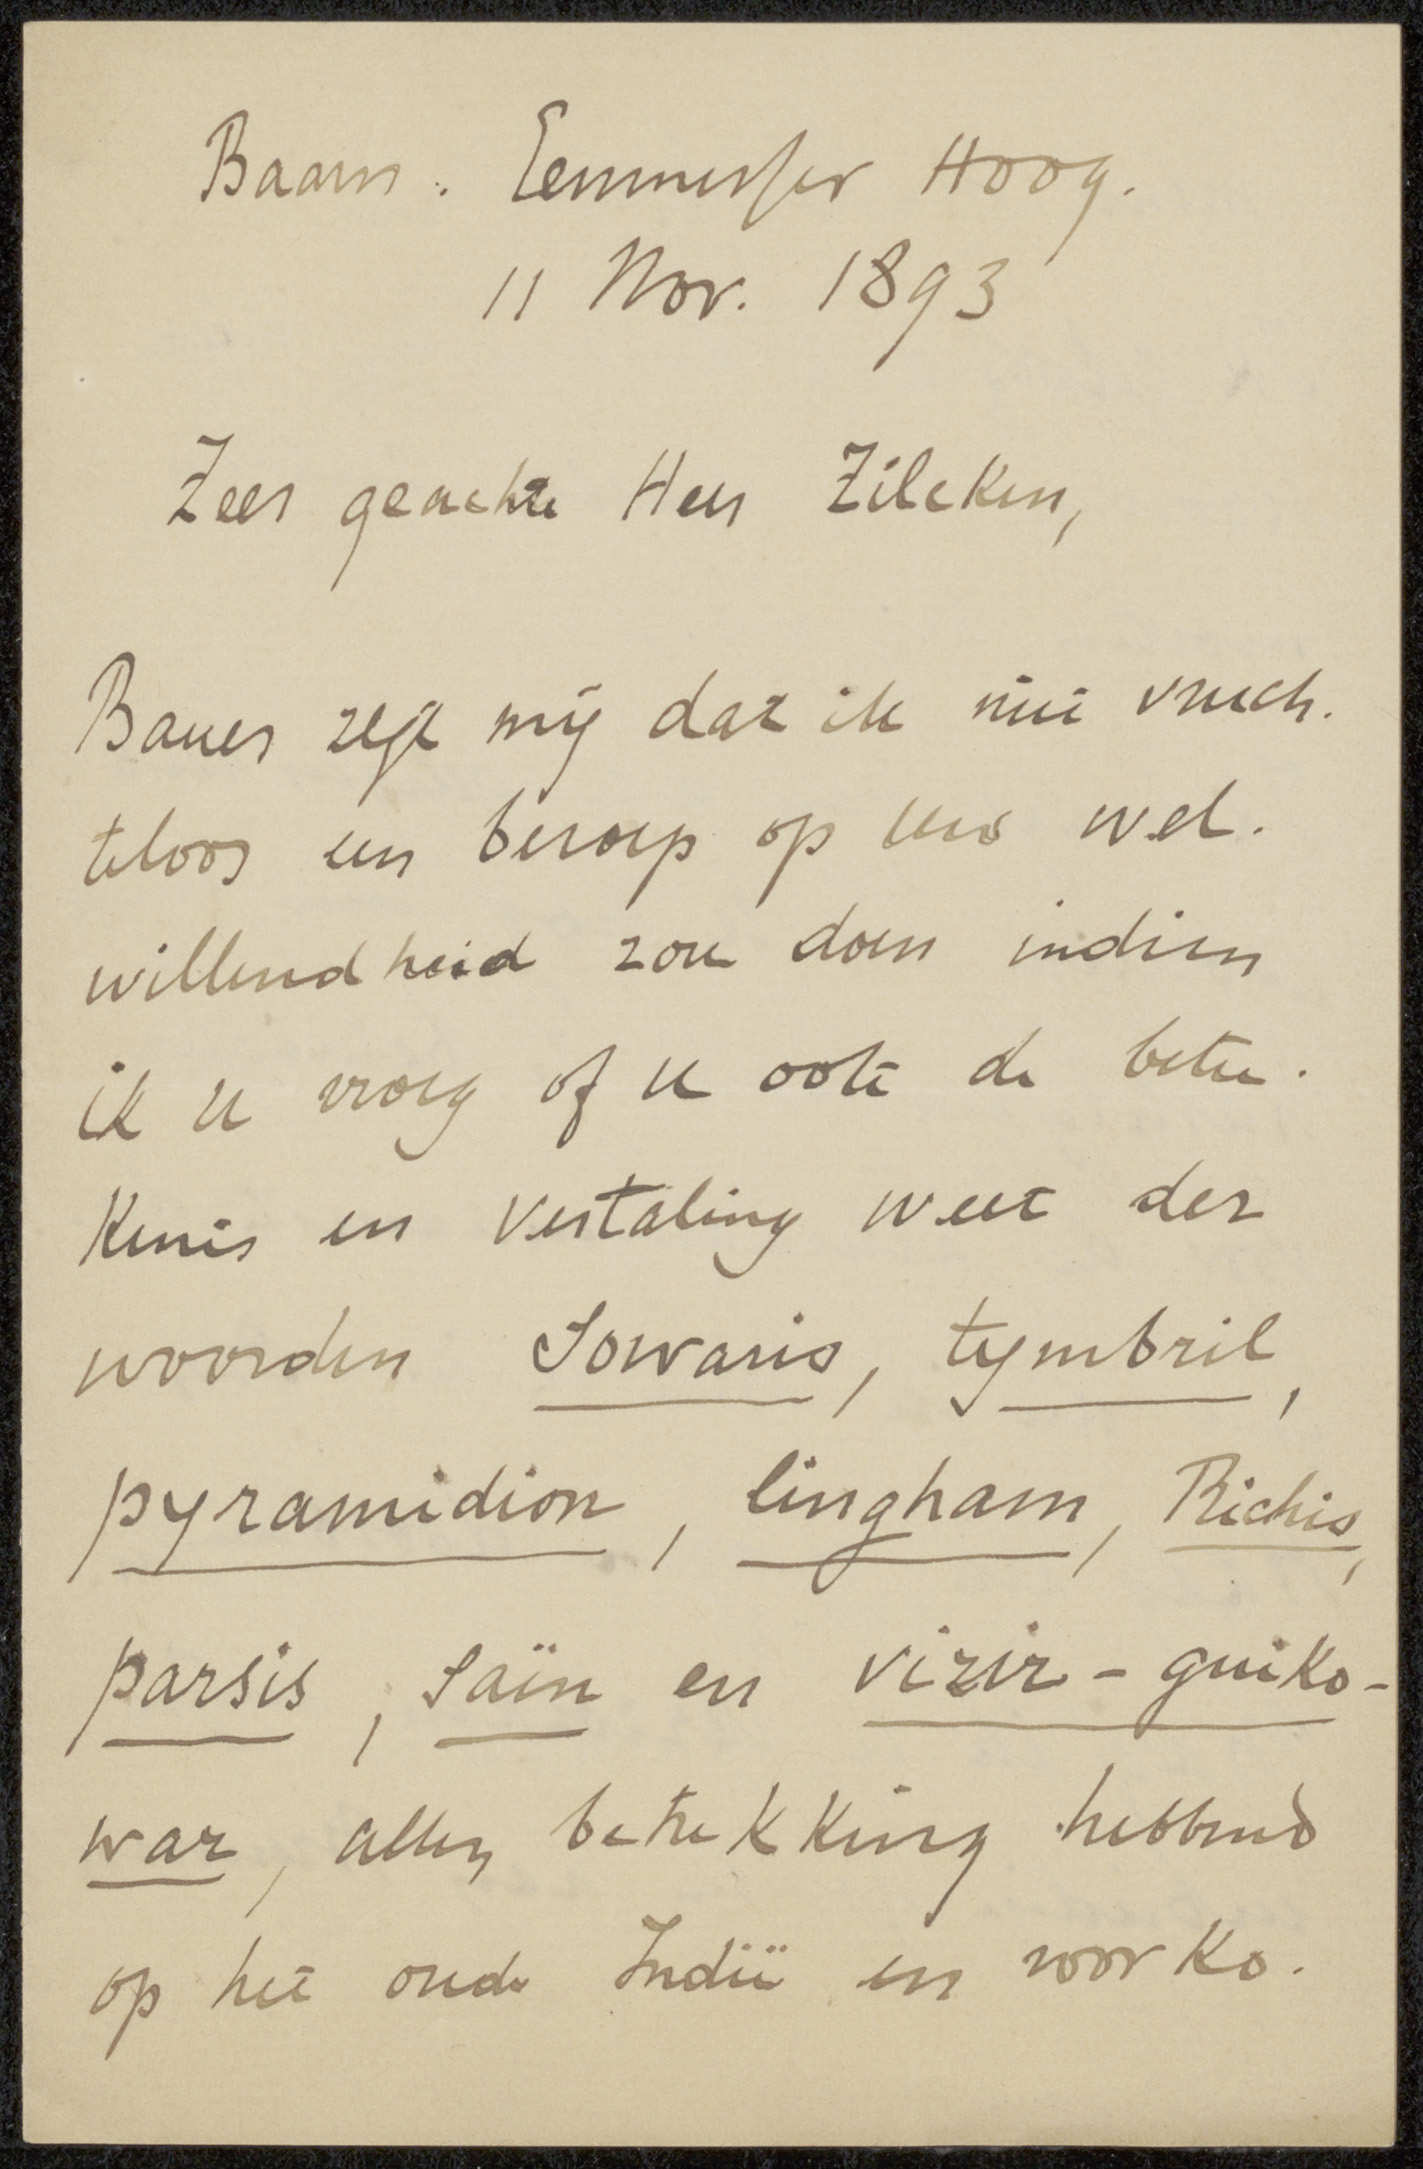 Baarn. Eemnesser Hoog.
11 Nov. 1893
Zeer geachte Heer Zilcken,
Bauer zegt mij dat ik niet vruch.
teloos een beroep op uw wel.
willendheid zou doen indien
ik u vroeg of u ook de betee.
kenis en vertaling weet der
woorden Sowaris, tymbril,
pyramidion, lingham, Richis,
parsis, saïn en vizir-guiko-
war, allen betrekking hebbend
op het oude Indië en voorko.